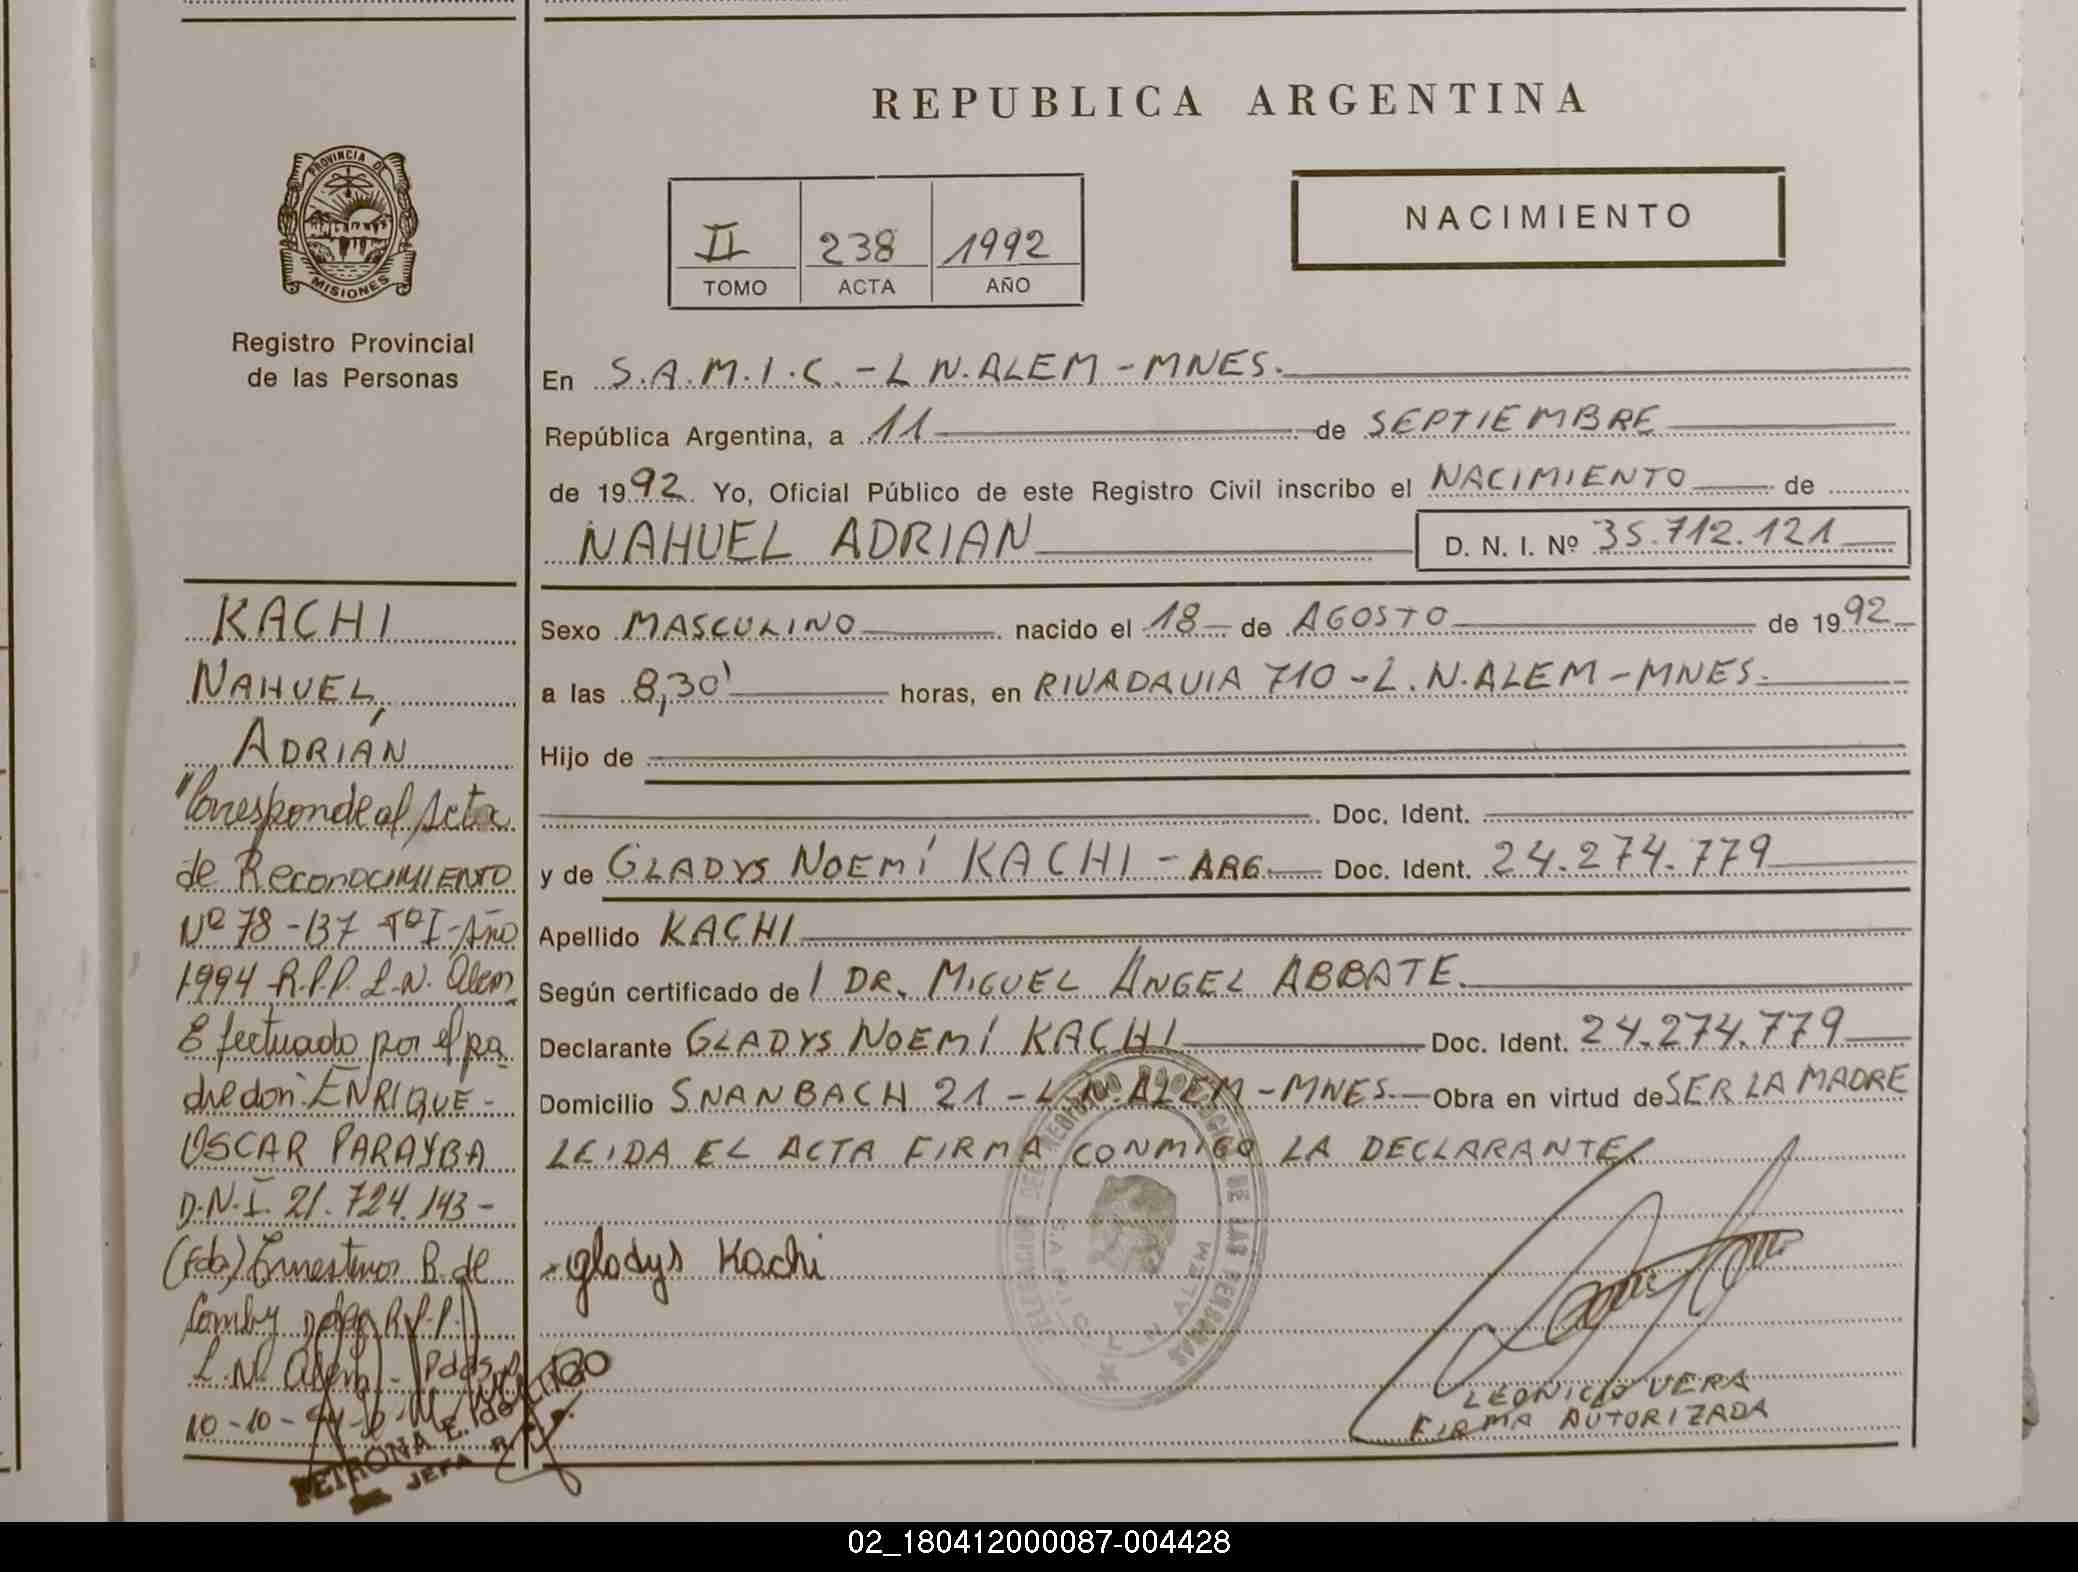 REPUBLICA ARGENTINA
PROVINCIA DE
MISIONES
Registro Provincial
de las Personas
II 238 1992
TOMO ACTA AÑO
NACIMIENTO
En S.A.M.I.C. - L N. ALEM - MNES.
República Argentina, a 11 de SEPTIEMBRE
de 1992. Yo, Oficial Público de este Registro Civil inscribo el NACIMIENTO de
NAHUEL ADRIAN D. N. I. Nº 35.712.121
KACHI
NAHUEL,
ADRIÁN
"Corresponde al Acta
de RECONOCIMIENTO
Nº 78 - 137 Tº I - Año
1994 R.P.P. L.N. Alem
Efectuado por el pa
dre don: ENRIQUE -
OSCAR PARAYBA
D.N.I. 21.724.143 -
(Fdo) Ernestina R. de
Comby R.P.P.
L.N. Alem - Pdas,
10 - 10 - 94
PETRONA E.
JEFA R.
Sexo MASCULINO nacido el 18 de AGOSTO de 1992
a las 8,30' horas, en RIVADAVIA 710 - L. N. ALEM - MNES.
Hijo de
Doc. Ident.
y de GLADYS NOEMÍ KACHI - ARG Doc. Ident. 24.274.779
Apellido KACHI
Según certificado de l DR. MIGUEL ANGEL ABBATE.
Declarante GLADYS NOEMÍ KACHI Doc. Ident. 24.274.779
Domicilio SNANBACH 21 - L N. ALEM - MNES. Obra en virtud de SER LA MADRE
LEIDA EL ACTA FIRMA CONMIGO LA DECLARANTE
gladys Kachi
DE LAS PERSONAS
LEONICIO VERA
FIRMA AUTORIZADA
02_180412000087-004428